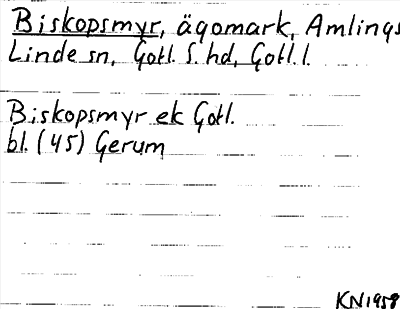 Biskopsmyr, ägomark, Amlings
Linde sn, Gotl. S. hd, Gotl. l.
Biskopsmyr ek Gotl.
bl. (45) Gerum
KN 1958